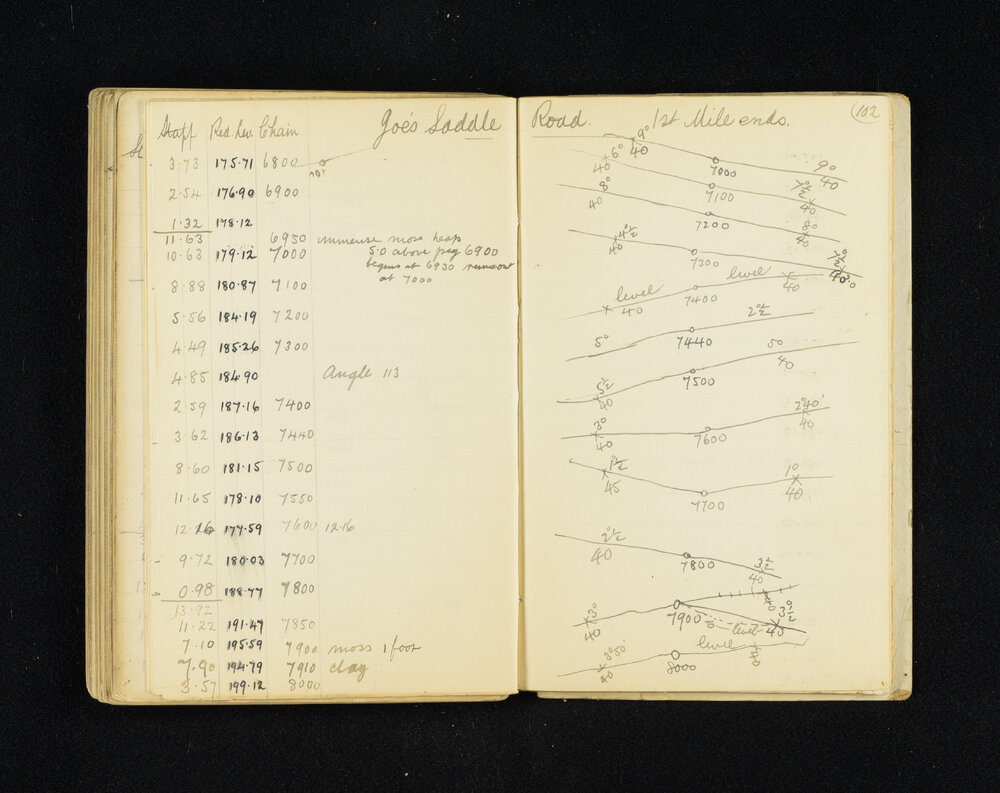 Staff Red. Lev. Chain Joe's Saddle
3·73 175·71 6800
2·54 176·90 6900
1·32 178·12
11·63 6950 immense moss heap
10·63 179·12 7000 5·0 above peg 6900
begins at 6930 runsout
at 7000
8·88 180·87 7100
5·56 184·19 7200
4·49 185·26 7300
4·85 184·90 Angle 113
2·59 187·16 7400
3·62 186·13 7440
8·60 181·15 7500
11·65 178·10 7550
12·16 177·59 7600 12·16
9·72 180·03 7700
0·98 188·77 7800
13·92
11·22 191·47 7850
7·10 195·59 7900 moss 1 foot
7·90 194·79 7910 clay
3·57 199·12 8000
Road. 1st Mile ends. 102
9° 40 7000 9° 40
6° 40 7100 7½° 40
8° 40 7200 8° 40
4½° 40 7300 7½°
level 40 7400 level 40
5° 7440 2½°
5½ 40 7500 5° 40
3° 40 7600 2°40' 40
1½° 45 7700 1° 40
2½° 40 7800 3½ 40
3° 40 7900 level 40 3½° 45
40 8000 level 40